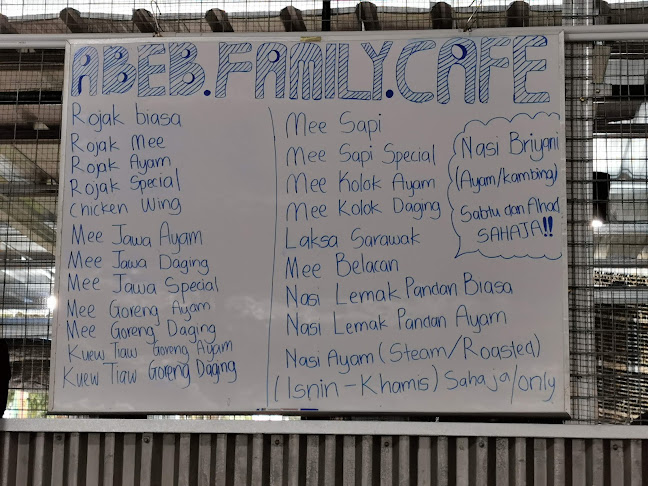 ABEB.FAMILY.CAFE
Rojak biasa
Rojak Mee
Rojak Ayam
Rojak Special
Chicken Wing
Mee Jawa Ayam
Mee Jawa Daging
Mee Jawa Special
Mee Goreng Ayam
Mee Goreng Daging
Kuew Tiaw Goreng Ayam
Kuew Tiaw Goreng Daging
Mee Sapi
Mee Sapi Special
Mee Kolok Ayam
Mee Kolok Daging
Laksa Sarawak
Mee Belacan
Nasi Lemak Pandan Biasa
Nasi Lemak Pandan Ayam
Nasi Ayam (Steam/Roasted)
(Isnin-Khamis) Sahaja/only
Nasi Briyani
(Ayam/kambing)
Sabtu dan Ahad
SAHAJA!!